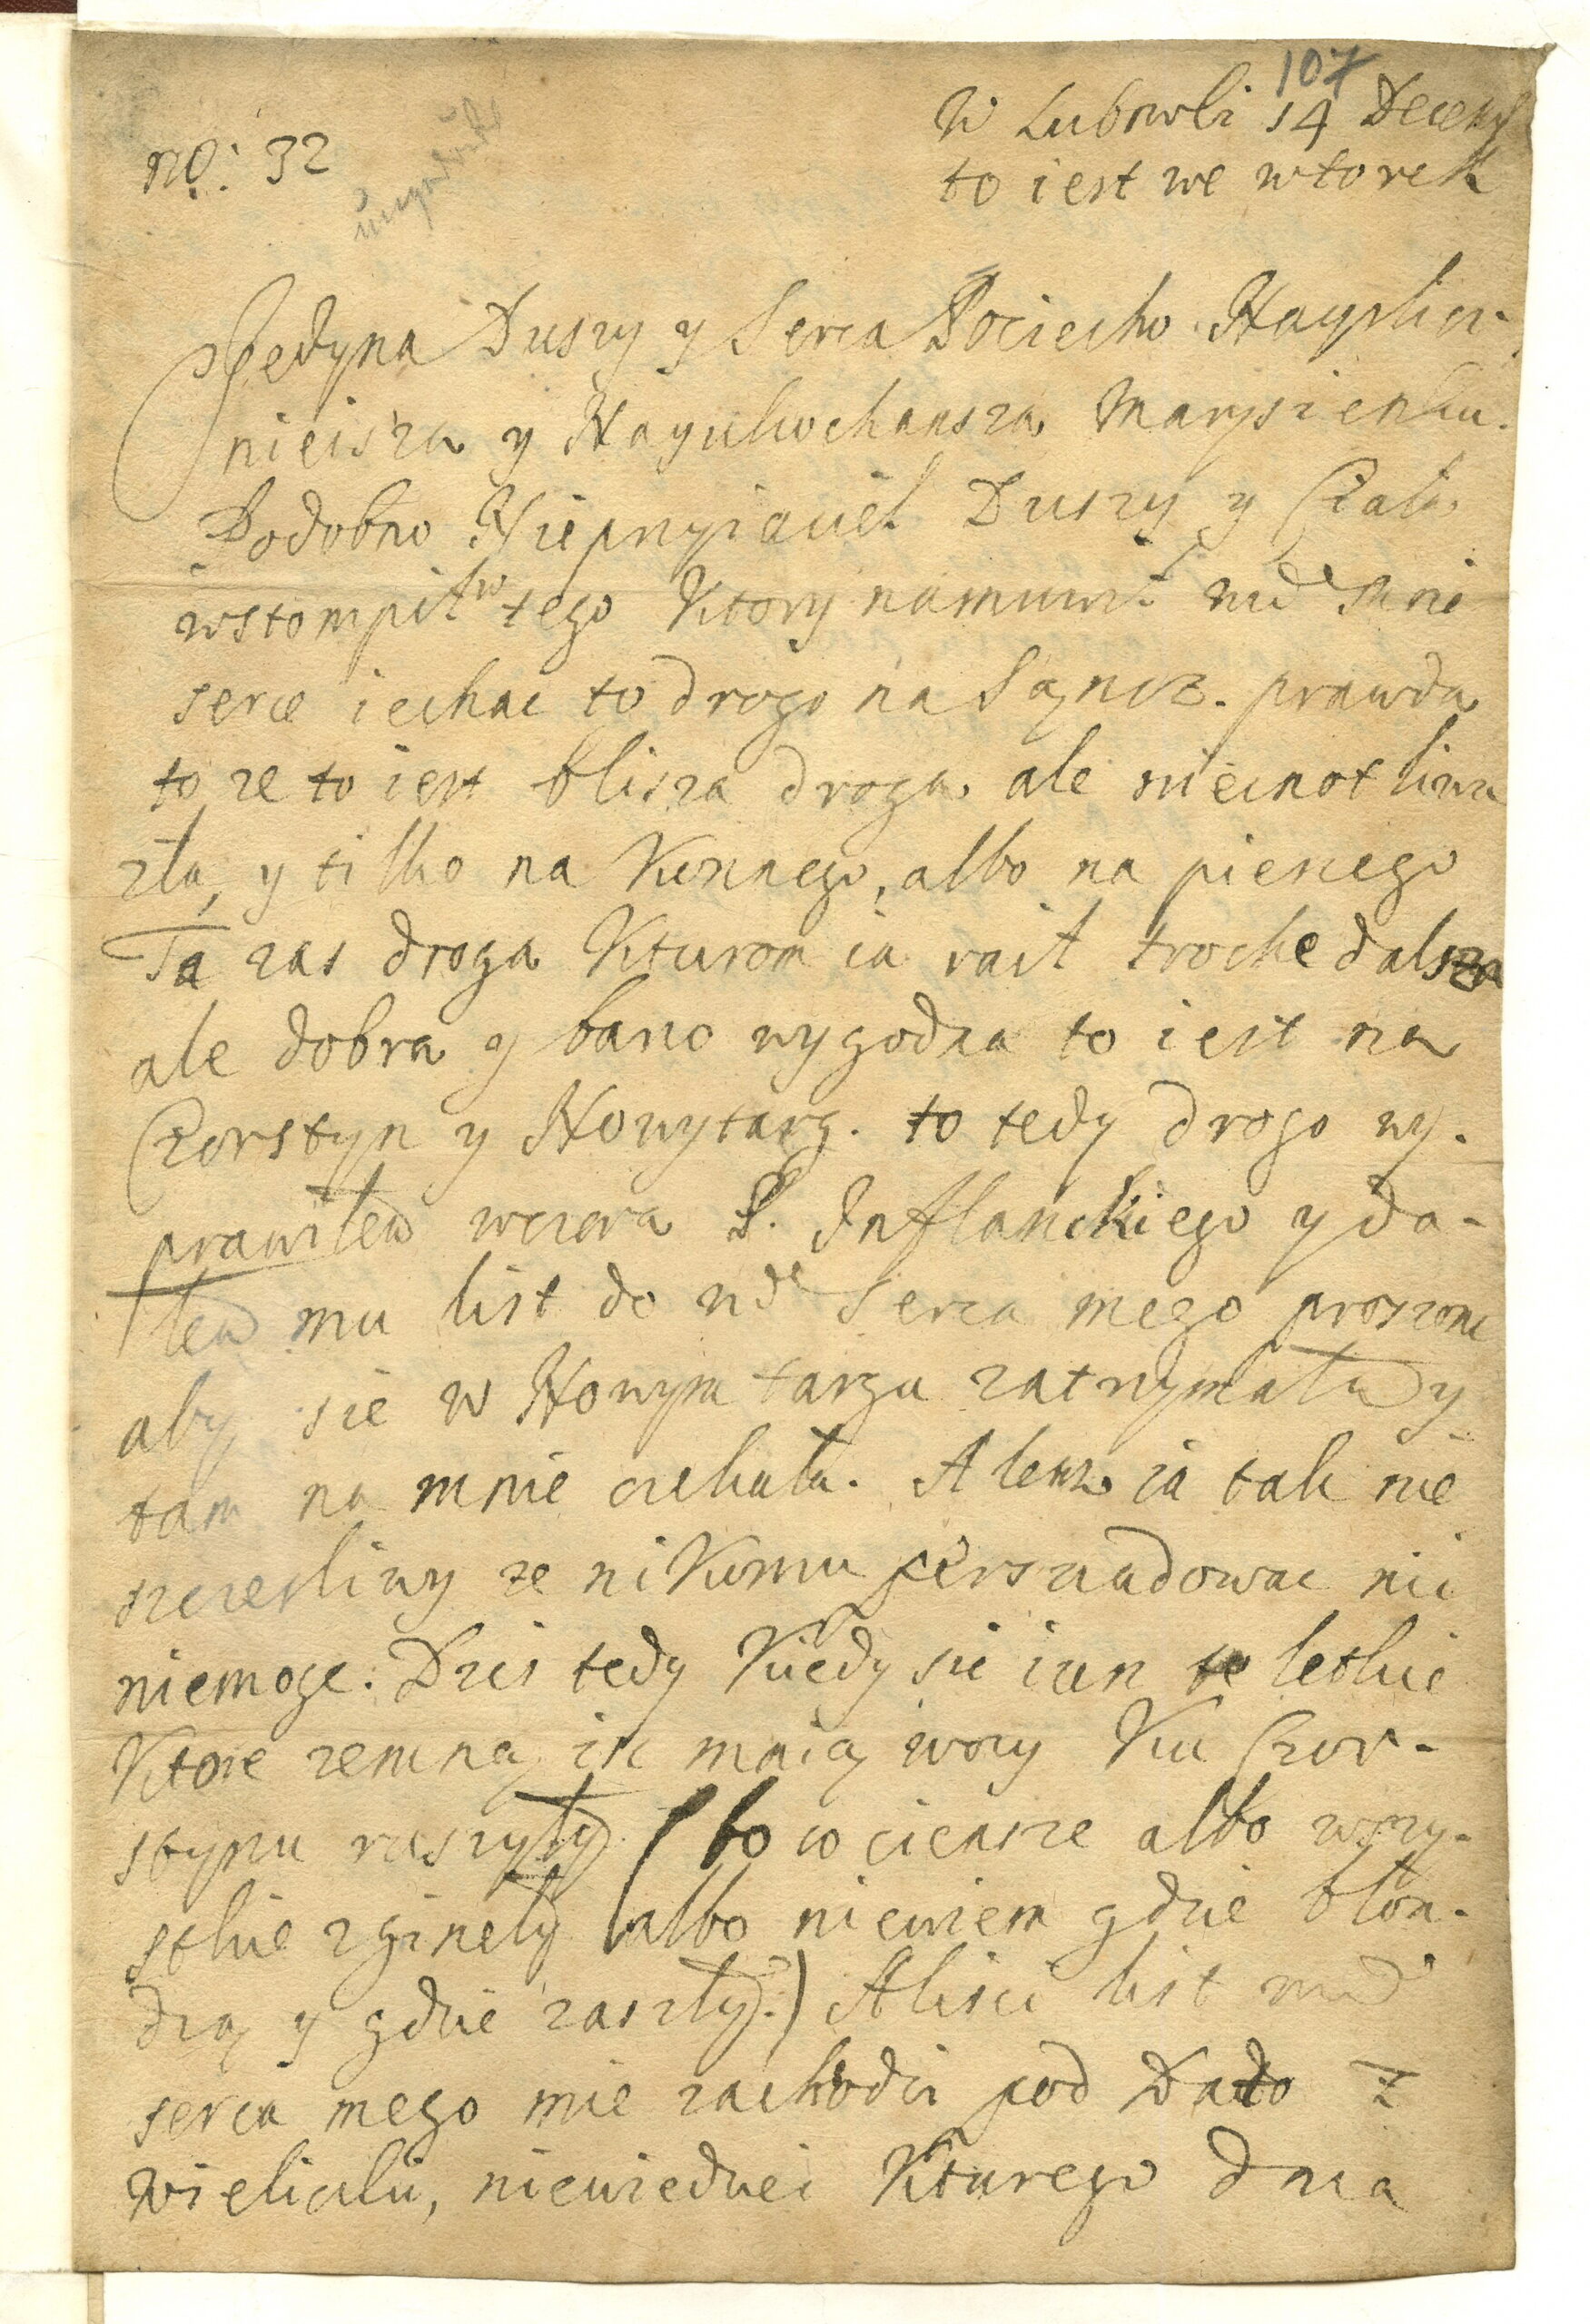 107
W Lubowli 14 Decemb
to iest we wtorek
no: 32
Jedyna Duszy y Serca Pociecho Nayslicz-
nieisza y Nayukochansza Marysienku.
Podobno Nieprzyiaciel Duszy y Ciala
wstompił w tego ktory namuwił wd mnie
serce iechac to drogo na Sąncz. prawda
to ze to iest blisza droga, ale niecnotliwa
zła, y tilko na konnego, albo na piesego
Ta zas droga kturom ia raił troche dalsza
ale dobra y barzo wygodna to iest na
Czorstyn y Nowytarg. to tedy drogo wy-
prawiłem wczora P. Inflanckiego y da-
łem mu list do wd serca mego proszonc
aby sie w Nowym targu zatrzymała y
tam na mnie czekała. Alem ia tak nie
szczesliwy ze nikomu perszuadowac nic
niemoge. Dzis tedy kiedy sie iuz te letkie
ktore zemną są mnią wozy ku Czor-
sztynu ruszyły (bo co ciensze albo wszy-
stkie zgineły albo niewiem gdzie błon-
dzą y gdzie zaszły.) Alisci list wd
serca mego mie zachodzi pod Dato z
Wieliczki, niewiedziec kturego dnia